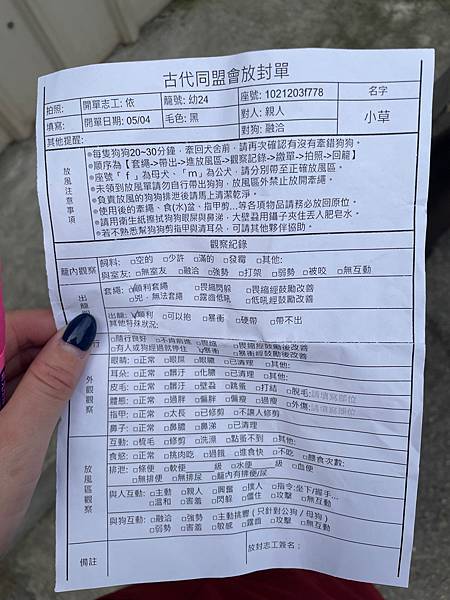 古代同盟會放封單
拍照: 開單志工: 依 籠號: 幼24 座號: 1021203f778 名字
填寫: 開單日期: 05/04 毛色: 黑 對人: 親人 小草
對狗: 融洽
其他提醒:
放風注意事項
●每隻狗狗20~30分鐘，牽回犬舍前，請再次確認有沒有牽錯狗狗。
●順序為【套繩→帶出→進放風區→觀察記錄→繳單→拍照→回籠】
●座號「ｆ」為母犬、「ｍ」為公犬，請分別帶至正確放風區。
●未領到放風單請勿自行帶出狗狗，放風區外禁止放開牽繩。
●負責放風的狗狗排泄後請馬上清潔乾淨。
●使用後的牽繩、食(水)盆、指甲剪...等各項物品請務必放回原位。
●請用衛生紙擦拭狗狗眼屎與鼻涕，大壁蝨用鑷子夾住丟入肥皂水。
●若不熟悉幫狗狗剪指甲與清耳朵，可請其他夥伴協助。
觀察紀錄
籠內觀察 飼料: □空的 □少許 □滿的 □發霉 □其他:
與室友: □無室友 □融洽 □強勢 □打架 □弱勢 □被咬 □無互動
出籠 套繩: □順利套繩 □畏縮閃躲 □畏縮經鼓勵改善
□兇，無法套繩 □露齒低吼 □低吼經鼓勵改善
出籠: □順利 □可以抱 □暴衝 □硬帶 □帶不出
其他特殊狀況:
行 □隨行良好 □不肯前進 □畏縮 □畏縮經鼓勵後改善
□有人或狗經過就停住 □暴衝 □暴衝經鼓勵後改善
外觀觀察
眼睛: □正常 □眼屎 □眼膿 □已清理 □其他:
耳朵: □正常 □髒汙 □化膿 □已清理 □其他:
皮毛: □正常 □髒汙 □壁蝨 □跳蚤 □打結 □脫毛:請填寫部位
體態: □正常 □過胖 □偏胖 □偏瘦 □過瘦 □外傷:請填寫部位
指甲: □正常 □太長 □已修剪 □不讓人修剪
鼻子: □正常 □鼻膿 □鼻涕 □已清理
放風區觀察
互動: □梳毛 □修剪 □洗澡 □點蚤不到 □其他:
食慾: □正常 □挑肉吃 □過餓 □進食快 □不吃 □餵食次數:
排泄: □條便 □軟便 級 □水便 級 □血便
□無排便 □無排尿 □籠內有排便/尿
與人互動: □主動 □親人 □興奮 □撲人 □指令:坐下/握手...
□溫和 □害羞 □閃躲 □僵住 □攻擊 □無互動
與狗互動: □融洽 □強勢 □主動挑釁 ( 只針對公狗 / 母狗 )
□弱勢 □害羞 □敏感 □露齒 □攻擊 □無互動
備註 放封志工簽名: